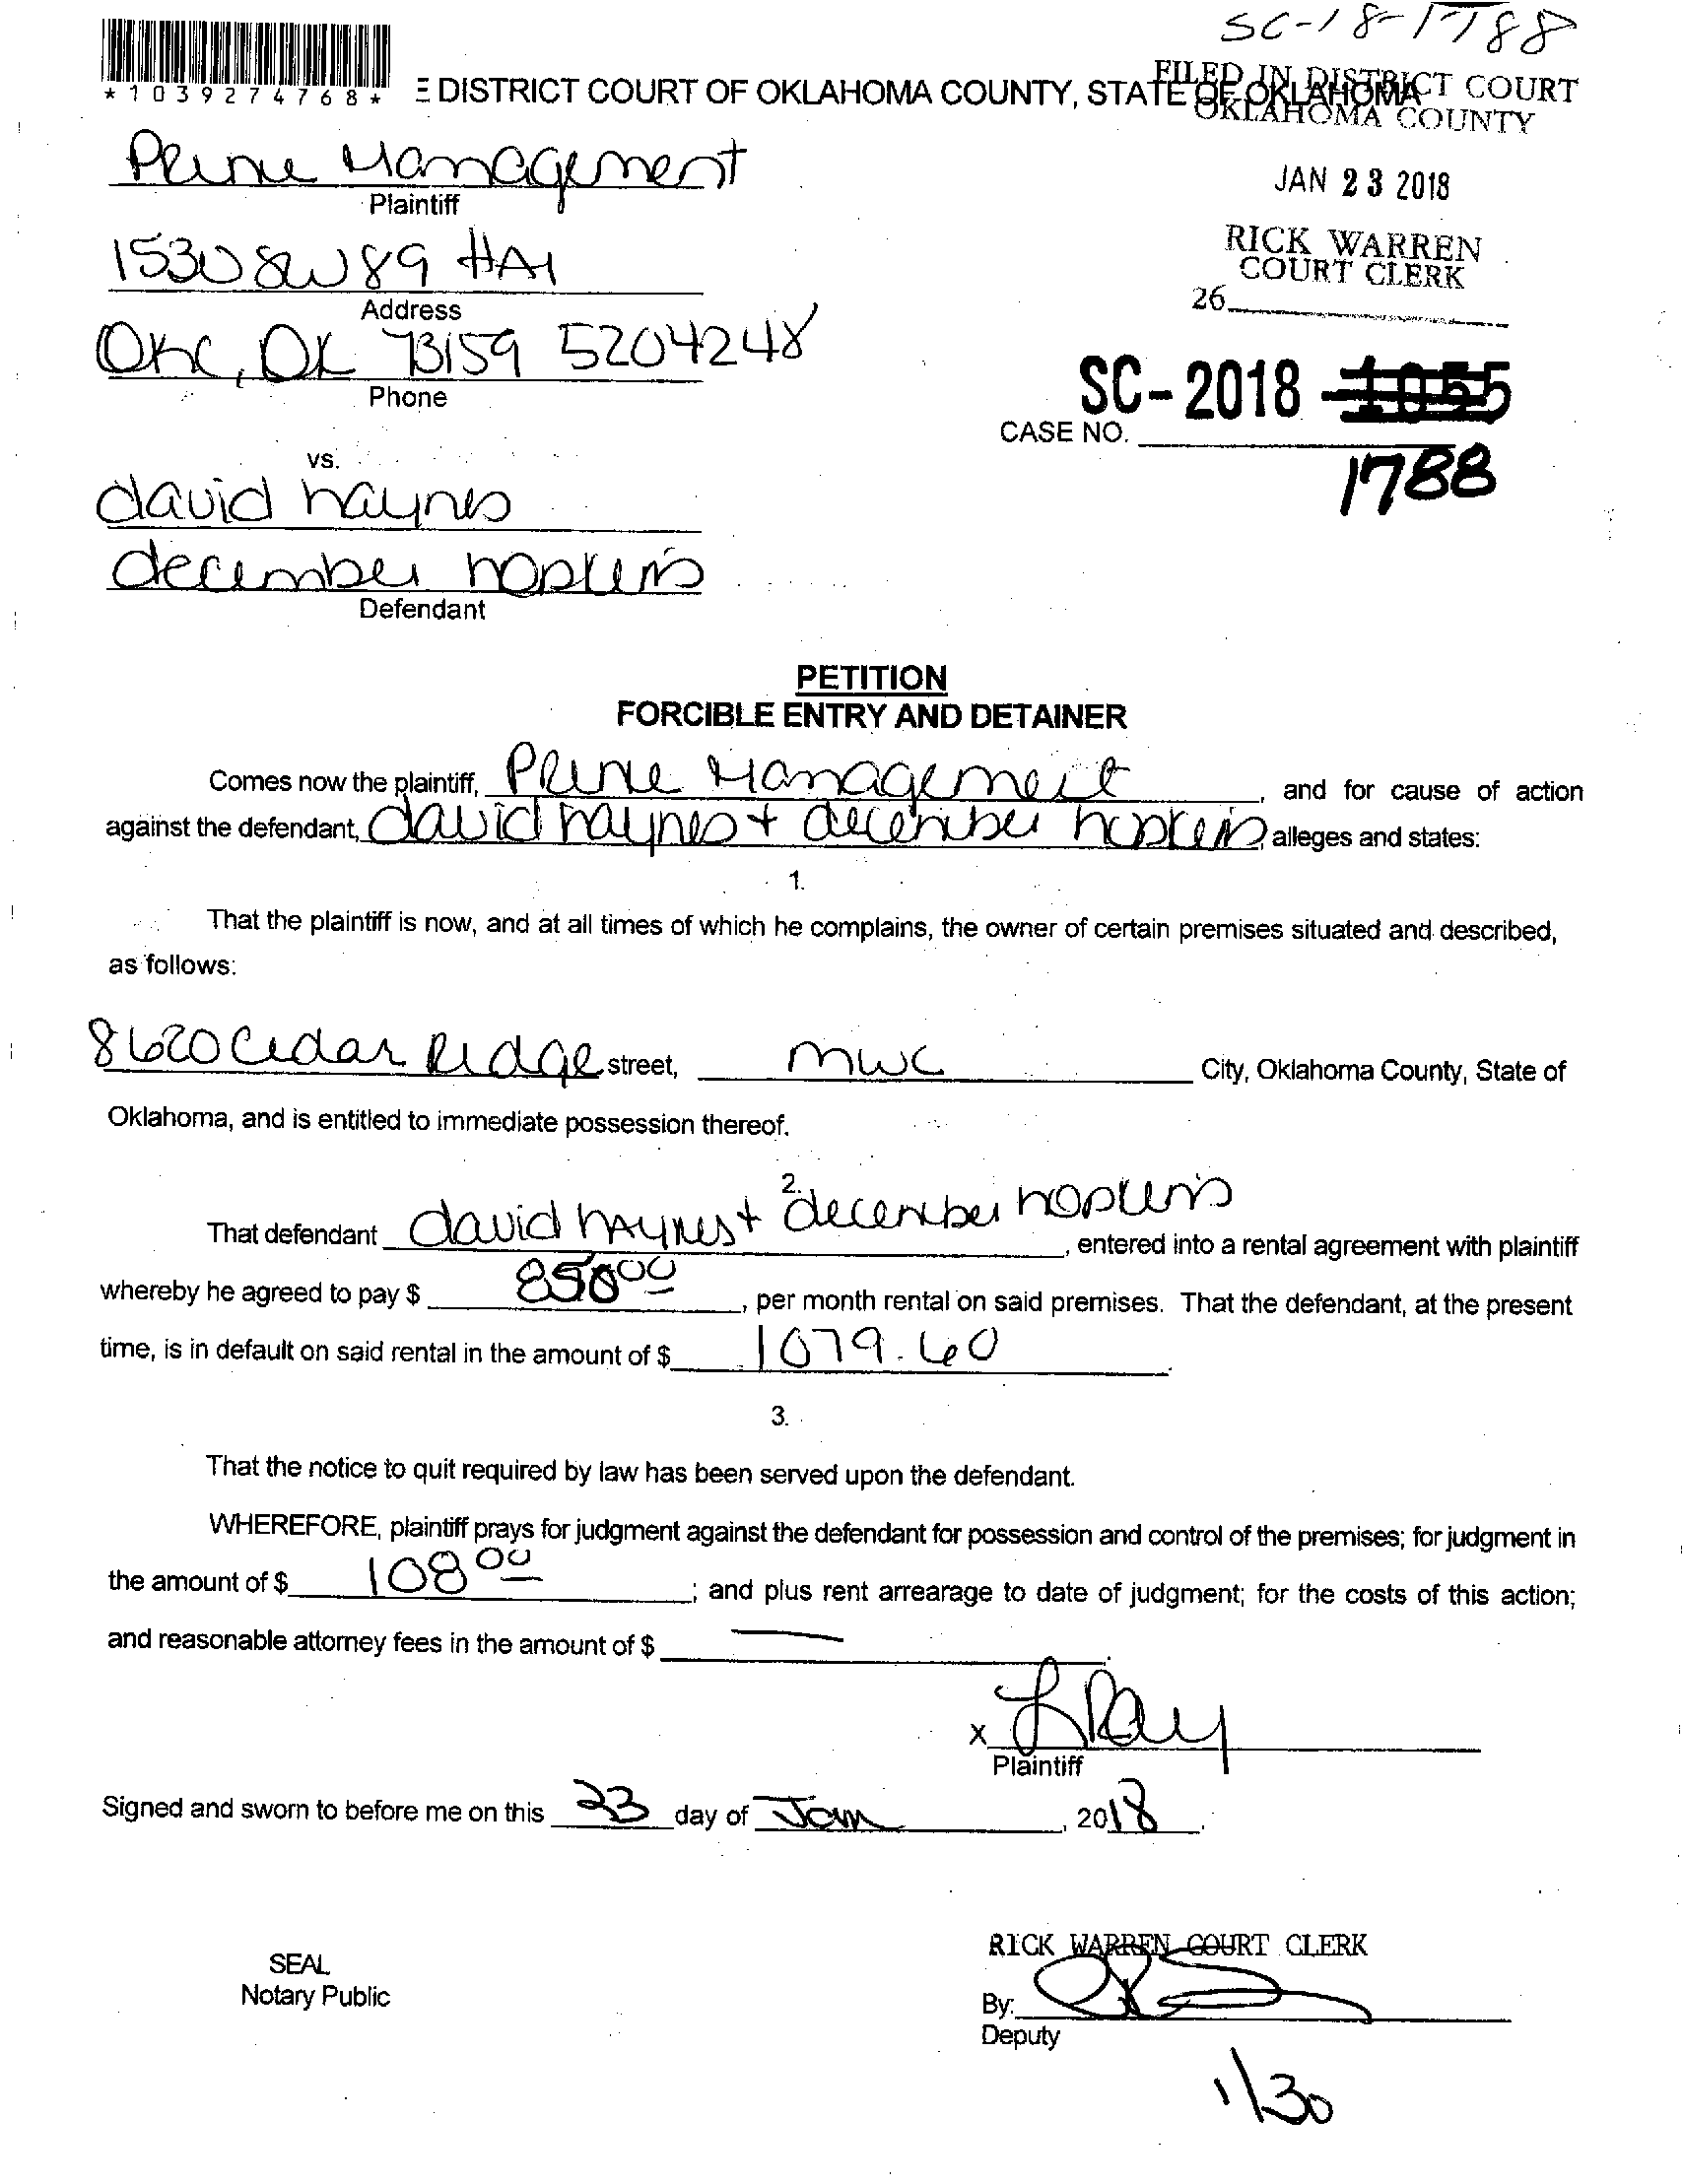 SC-18-1788
*1039274768*
E DISTRICT COURT OF OKLAHOMA COUNTY, STATE OF OKLAHOMA
FILED IN DISTRICT COURT
OKLAHOMA COUNTY
JAN 23 2018
RICK WARREN
COURT CLERK
26
Prime Management
Plaintiff
1530 SW 89 #A1
Address
OKC, OK 73159 5204248
Phone
SC-2018-1055
CASE NO.
1788
vs.
david haynes
december hopkins
Defendant
PETITION
FORCIBLE ENTRY AND DETAINER
Comes now the plaintiff, Prime Management, and for cause of action
against the defendant, david haynes + december hopkins, alleges and states:
1.
That the plaintiff is now, and at all times of which he complains, the owner of certain premises situated and described,
as follows:
8620 Cedar Ridge street, MWC City, Oklahoma County, State of
Oklahoma, and is entitled to immediate possession thereof.
2.
That defendant david haynes + december hopkins, entered into a rental agreement with plaintiff
whereby he agreed to pay $ 850 00, per month rental on said premises. That the defendant, at the present
time, is in default on said rental in the amount of $ 1079.60.
3.
That the notice to quit required by law has been served upon the defendant.
WHEREFORE, plaintiff prays for judgment against the defendant for possession and control of the premises; for judgment in
the amount of $ 108 00; and plus rent arrearage to date of judgment; for the costs of this action;
and reasonable attorney fees in the amount of $ —.
X LRay
Plaintiff
Signed and sworn to before me on this 23 day of Jan, 2018.
RICK WARREN COURT CLERK
SEAL
Notary Public
By:
Deputy
1/30